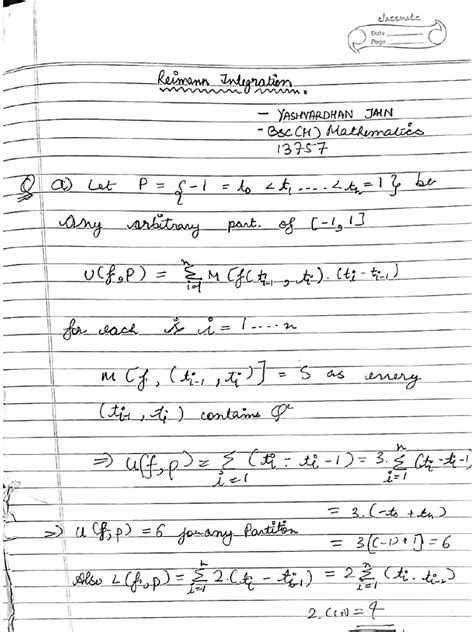 classmate
Date
Page
Reimann Integration.
— YASHVARDHAN JAIN
- BSC(H) Mathematics
13757
Q a) Let P = {-1 = t₀ < t₁ .... < tₙ = 1} be
Any arbitrary part. of [-1, 1]
U(f,P) = Σⁿᵢ₌₁ M [f(tᵢ₋₁ , tᵢ). (tᵢ - tᵢ₋₁)
for each is i = 1 ---- n
M [f, (tᵢ₋₁, tᵢ)] = S as every
(tᵢ₋₁, tᵢ) contains Qᶜ
⇒ U(f,P) = Σᵢ₌₁ (tᵢ - tᵢ - 1) = 3. Σⁿᵢ₌₁ (tᵢ - tᵢ - 1)
= 3. (-t₀ + tₙ)
⇒ U(f,P) = 6 for any Partition = 3[(-1) + 1] = 6
Also L(f,P) = Σⁿᵢ₌₁ 2. (tᵢ - tᵢ₋₁) = 2 Σⁿᵢ₌₁ (tᵢ. tᵢ₋₁)
2. (1+1) = 4